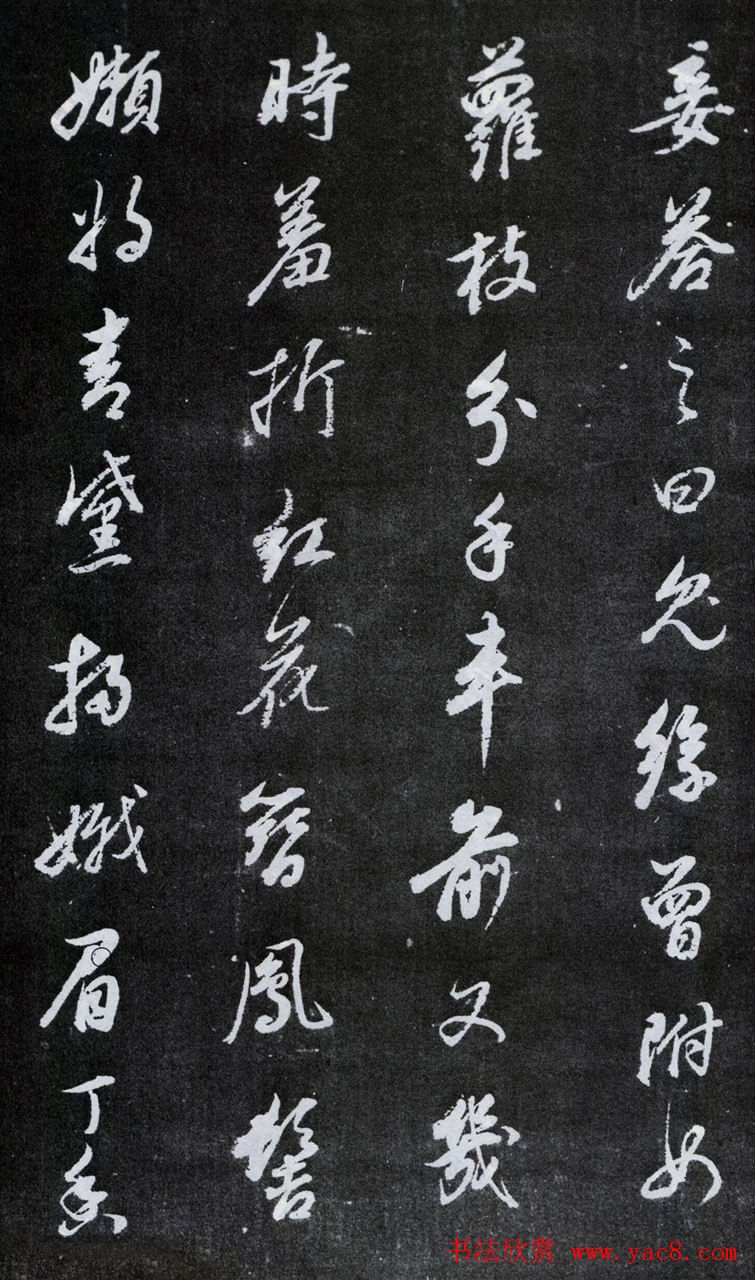 妾答之曰兔絲曾附女
蘿枝分手車前又幾
時羞折紅花簪鳳髻
嬾將青黛掃娥眉丁香
书法欣赏 www.yac8.com